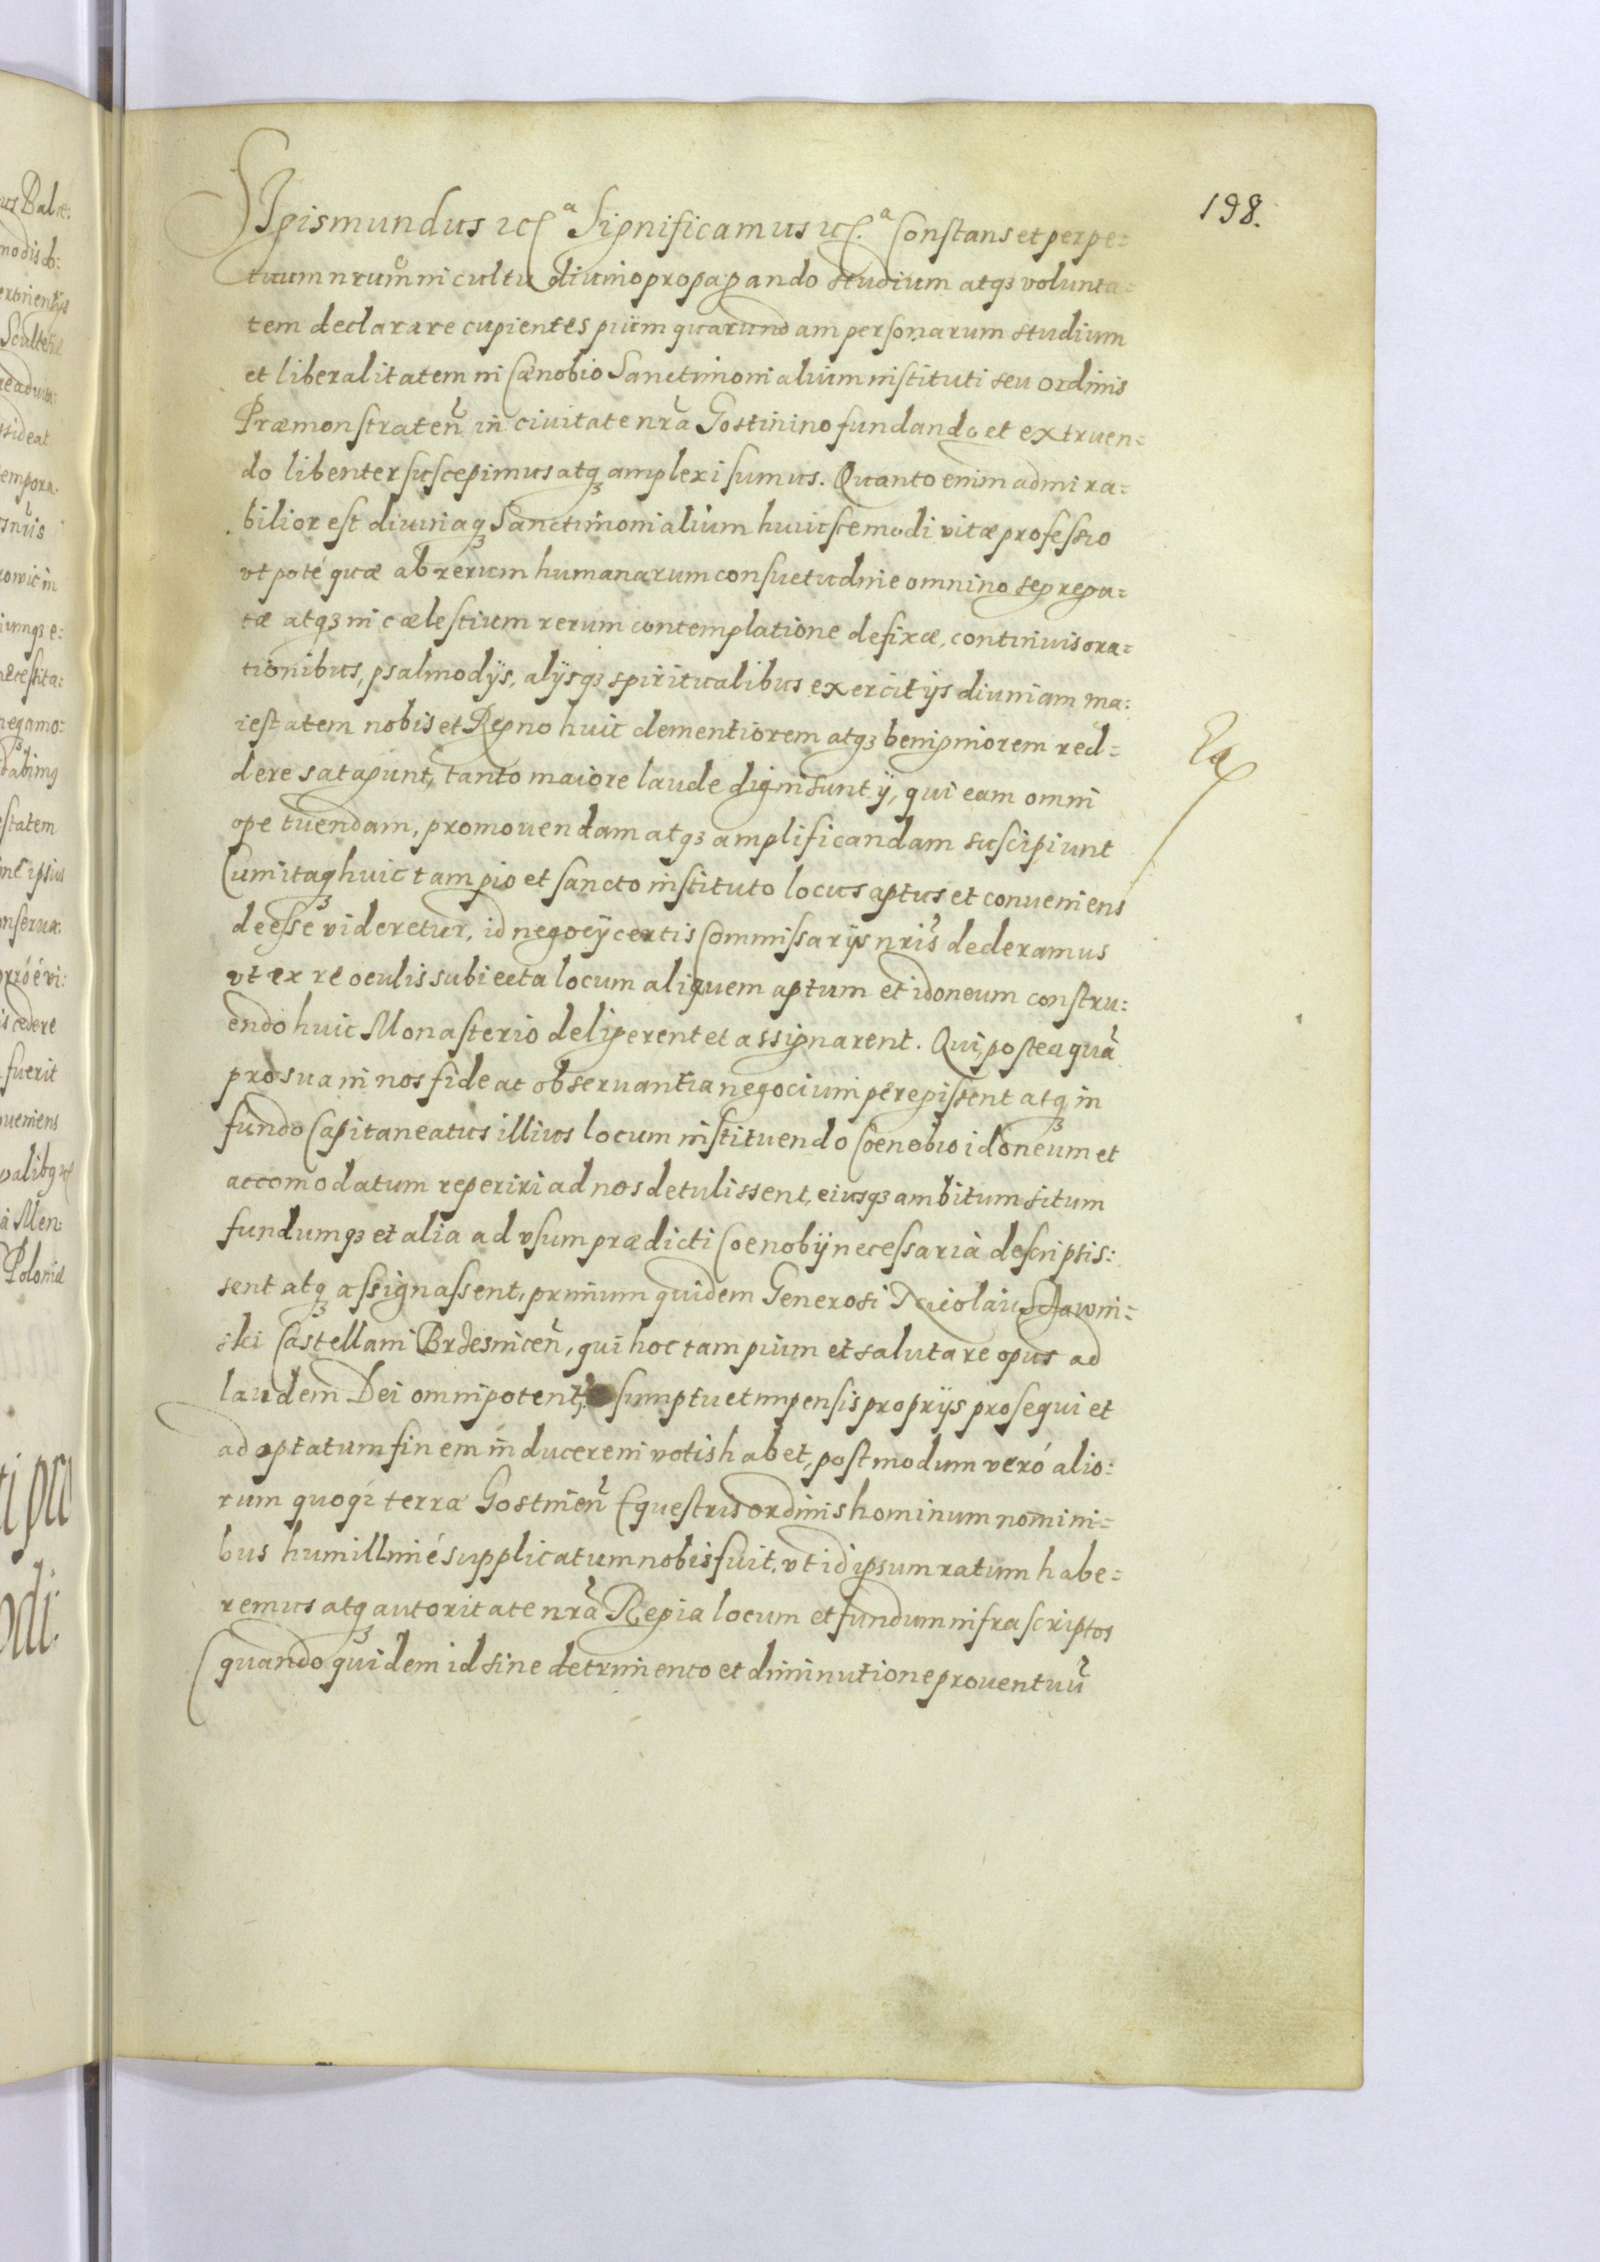 198.
Sigismundus etc.ª Significamus etc.ª Constans et perpe=
tuum nrum in cultu diuino propagando studium atq3 volunta=
tem declarare cupientes pium quarundam personarum studium
et liberalitatem in Cænobio Sanctimonialium instituti seu ordinis
Præmonstrateñ in ciuitate nrã Gostinino fundando et extruen=
do libenter suscepimus atq3 amplexi sumus. Quanto enim admira=
bilior est diuinaq3 Sanctimonialium huiuscemodi vitæ professio
vt poté quæ ab rerum humanarum consuetudine omnino segrega=
tæ atq3 in cælestium rerum contemplatione defixæ, continuis ora=
tionibus, psalmodijs, alijsq3 spiritualibus exercitijs diuinam ma=
iestatem nobis et Regno huic clementiorem atq3 benigniorem red=
dere satagunt, tanto maiore laude digni sunt ij, qui eam omni
ope tuendam, promouendam atq3 amplificandam suscipiunt
Cum itaq3 huic tam pio et sancto instituto locus aptus et conueniens
deesse videretur, id negocij certis Commissarijs nris dederamus
vt ex re oculis subiecta locum aliquem aptum et idoneum constru=
endo huic Monasterio deligerent et assignarent. Qui postea quã
pro sua in nos fide ac obseruantia negocium peregissent atq3 in
fundo Capitaneatus illius locum instituendo Coenobio idoneum et
accomodatum reperiri ad nos detulissent, eiusq3 ambitum situm
fundumq3 et alia ad vsum prædicti Coenobij necessaria descripsis=
sent atq3 assignassent, primum quidem Generosi Nicolai
ski Castellani qui hoc tam pium et salutare opus ad
laudem Dei omnipotent, sumptu et impensis proprijs prosequi et
ad optatum finem inducere in votis habet, postmodum veró alio=
rum quoq3 terræ Gostineñ Equestris ordinis hominum nomini=
bus humillimé supplicatum nobis fuit, vt id ipsum ratum habe=
remus atq3 autoritate nrã Regia locum et fundum infrascriptos
quandoquidem id sine detrimento et diminutione prouentuũ